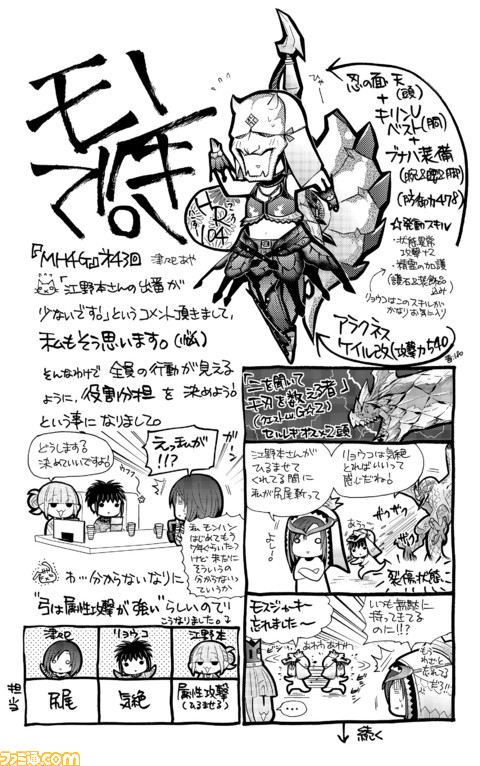 モンハンで。
『MH4G』第43回
「江野本さんの出番が
少ないです。」というコメント頂きまして、
私もそう思います。(悩)
そんなわけで 全員の行動が見える
ように、役割分担 を 決めよう!
という事に なりまして。
忍の面・天
(頭)
+
キリンU
ベスト(胴)
+
ブナハ装備
(腕、腰、脚)
(防御力478)
☆発動スキル
・状態異常
攻撃+2
・精霊の加護
(護石&装飾品
込み)
リョウコはこのスキルが
かなりお気に入り
HR
104
アラクネス
ケイル改(攻撃力540)
どうしする
決めていいですよ!
えっ!私が
!!?
私 モンハン
はじめてもう
7年ぐらいたつ
けど 未だに
そういうの
分からない
というか
わ…分からないなりに
"弓は属性攻撃が強い"らしいので
こうなりました。
リョウコ
江野本
担当
尻尾
気絶
属性攻撃
(ひるませる)
セルレギオス×2頭
江野本さんが
ひるませて
くれてる間に
私が尻尾斬って
リョウコは気絶
とればいいって
感じだね!
よし!
あうっ
裂傷状態
モスジャーキー
忘れました〜
あわわ あわわ
いつも無駄に
持ってきてる
のに!!?
・・・
続く
ファミ通.com